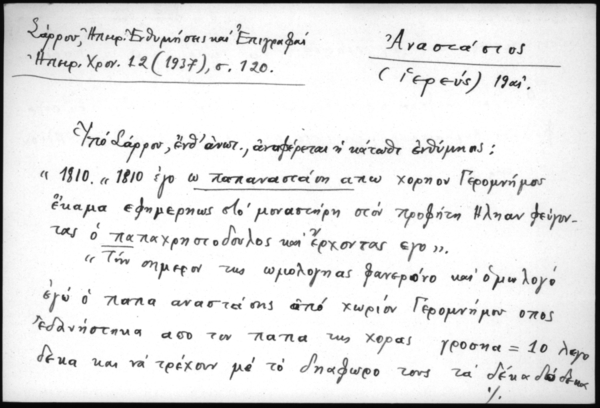 Σάρρου, Ἠπειρ. Ἐνθυμήσεις καὶ Ἐπιγραφαί
Ἠπειρ. Χρον. 12 (1937), σ. 120.
Ἀναστάσιος
(ἱερεύς) 19αἰ.
Ὑπό Σάρρου, ἔνθ' ἀνωτ., ἀναφέρεται ἡ κάτωθι ἐνθύμησις:
« 1810. « 1810 ἐγο ω παπαναστάση απω χορηον Γερομνήμος
ἔκαμα εφημερηως στο μοναστήρη στόν προφήτη Ηληαν φεύγον-
τας ὁ παπαχρηστοδουλος καί ἔρχοντας εγο».
« Τήν σημερον της ωμολογηας φανερόνο καί ὁμολογό
ἐγώ ὁ παπα αναστάσης ἀπό χωρίον Γερομνήμου οπος
ἐδανήστηκα απο τον παπα της χορας γροσηα = 10 λεγο
δεκα και νά τρέχουν μέ τό δηαφωρο τους τα δέκα δόδεκα
·/.